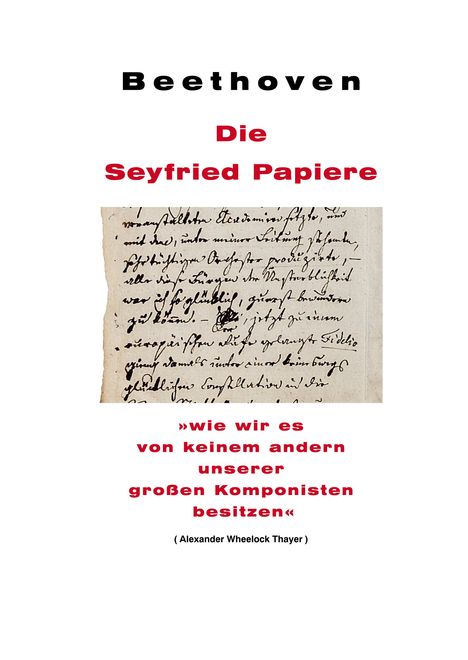 Beethoven
Die
Seyfried Papiere
veranstalteten Academien setzte, und
mit dem, unter meiner Leitung stehenden,
Orchester produzirte, —
alle diese Bürgen der Unsterblichkeit
war ich so glücklich, zuerst bewundern
zu können. — , jetzt zu einem
Der
europäischen Rufe gelangte Fidelio
gieng damals unter einer keineswegs
glücklichen Constellation in die
»wie wir es
von keinem andern
unserer
großen Komponisten
besitzen«
( Alexander Wheelock Thayer )